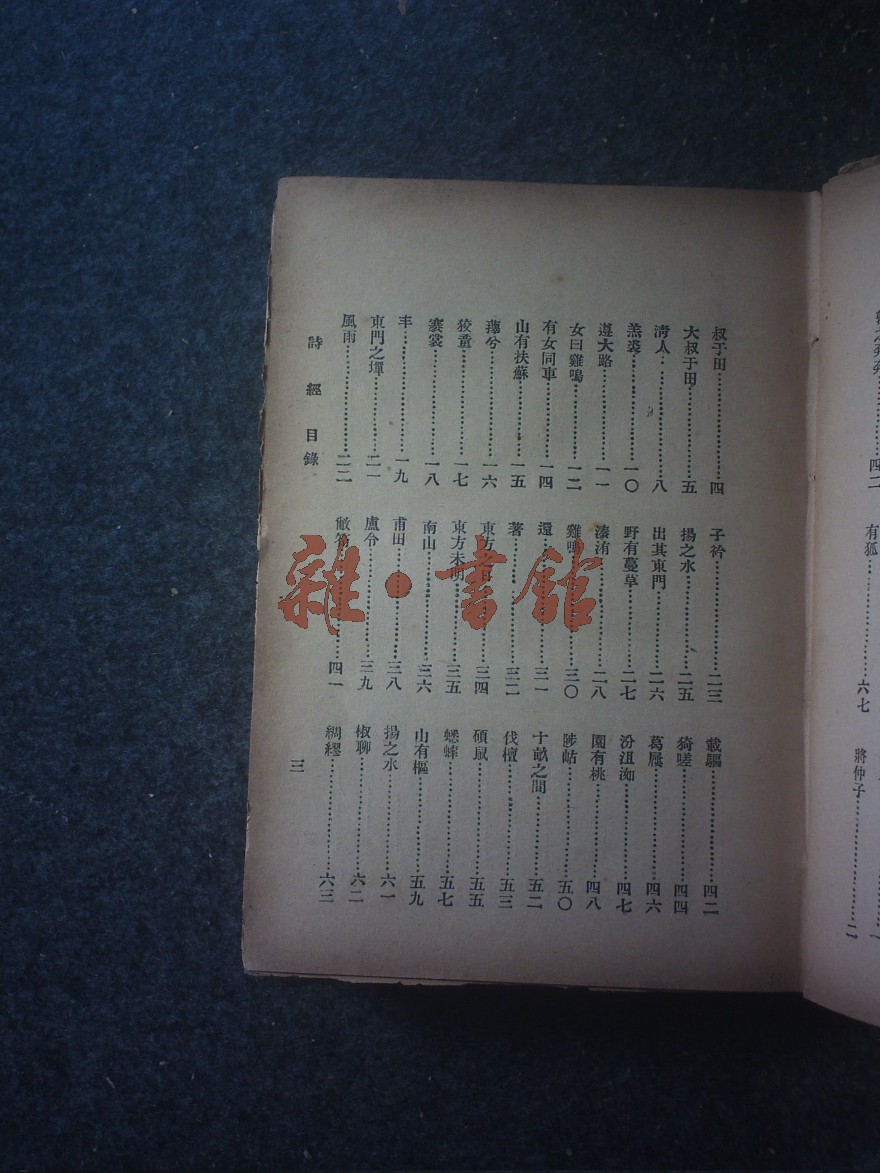 有狐……六七
將仲子……二
叔于田……四
大叔于田……五
清人……八
羔裘……一〇
遵大路……一一
女曰雞鳴……一二
有女同車……一四
山有扶蘇……一五
蘀兮……一六
狡童……一七
褰裳……一八
丰……一九
東門之墠……二一
風雨……二二
子衿……二三
揚之水……二五
出其東門……二六
野有蔓草……二七
溱洧……二八
雞鳴……三〇
還……三一
著……三二
東方之日……三四
東方未明……三五
南山……三六
甫田……三八
盧令……三九
敝笱……四一
載驅……四二
猗嗟……四四
葛屨……四六
汾沮洳……四七
園有桃……四八
陟岵……五〇
十畝之間……五二
伐檀……五三
碩鼠……五五
蟋蟀……五七
山有樞……五九
揚之水……六一
椒聊……六二
綢繆……六三
詩經目錄
三
雜·書館